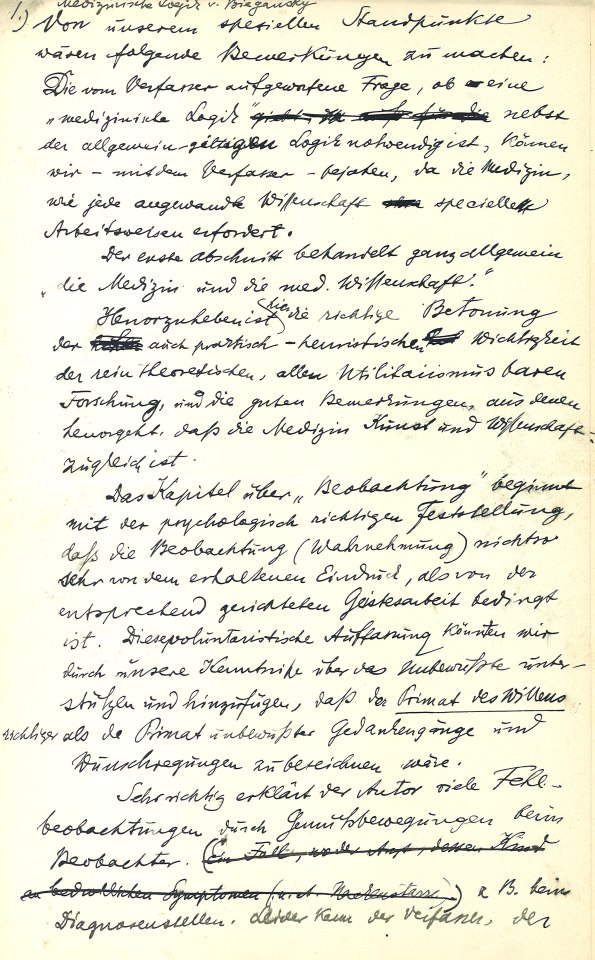 Medizinische Logik v. Biegansky
1.) Von unserem speziellen Standpunkte
wären folgende Bemerkungen zu machen:
Die vom Verfasser aufgeworfene Frage, ob eine
„medizinische Logik" nebst
der allgemein-gültigen Logik notwendig ist, können
wir – mit dem Verfasser – bejahen, da die Medizin,
wie jede angewandte Wissenschaft specielle
Arbeitsweisen erfordert.
Der erste Abschnitt behandelt ganz allgemein
„die Medizin und die med. Wissenschaft."
Hervorzuheben ist hier die richtige Betonung
der auch praktisch-heuristischen Wichtigkeit
der rein theoretischen, allen Utilitarismus baren
Forschung, und die guten Bemerkungen, aus denen
hervorgeht, daß die Medizin Kunst und Wissenschaft
zugleich ist.
Das Kapitel über „Beobachtung" beginnt
mit der psychologisch richtigen Feststellung,
daß die Beobachtung (Wahrnehmung) nicht so
sehr von dem erhaltenen Eindruck, als von der
entsprechend gerichteten Geistesarbeit bedingt
ist. Diese voluntaristische Auffassung könnten wir
durch unsere Kenntniße über das Unbewußte unter-
stützen und hinzufügen, daß der Primat des Willens
richtiger als der Primat unbewußter Gedankengänge und
Wunschregungen zu bezeichnen wäre.
Sehr richtig erklärt der Autor viele Fehl-
beobachtungen durch Gemütsbewegungen beim
Beobachter. (Ein Fall, wo der Arzt, dessen Kind
an bedrohlichen Symptomen ) z. B. beim
Diagnosenstellen. Leider kann der Verfasser, der